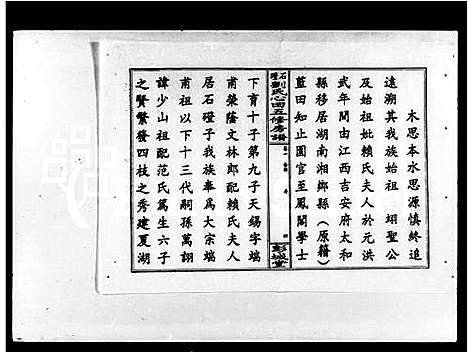 木思本水思源慎終追
遠溯其我族始祖 翊聖公
及始祖妣賴氏夫人於元洪
武年間由江西吉安府太和
縣移居湖南湘鄉縣（原籍）
藍田知止園官至鳳閣學士
石磴劉氏心田五修房譜
卷一
彭城堂
下育十子第九子天錫字端
甫榮蔭文林郎配賴氏夫人
居石磴子我族奉爲大宗端
甫祖以下十三代嗣孫萬翊
諱少山祖配范氏篤生六子
之賢繁發四枝之秀建夏湖